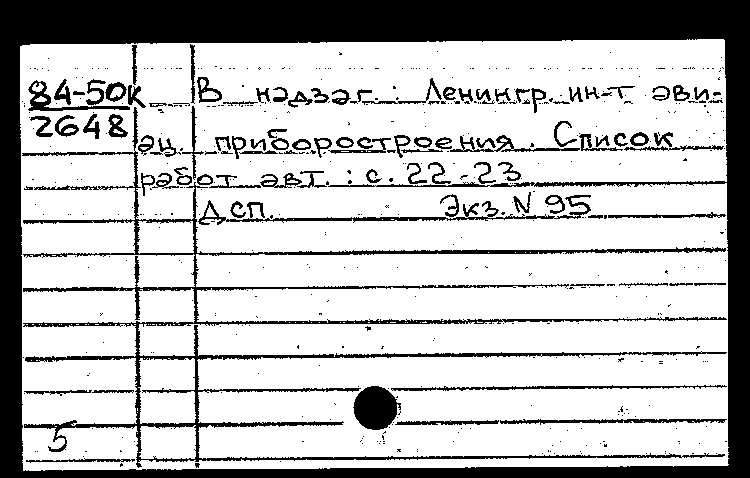 84-50к В надзаг.: Ленингр. ин-т ави-
2648 ац. приборостроения. Список
работ авт.: с. 22-23
ДСП. Экз. N 95
5